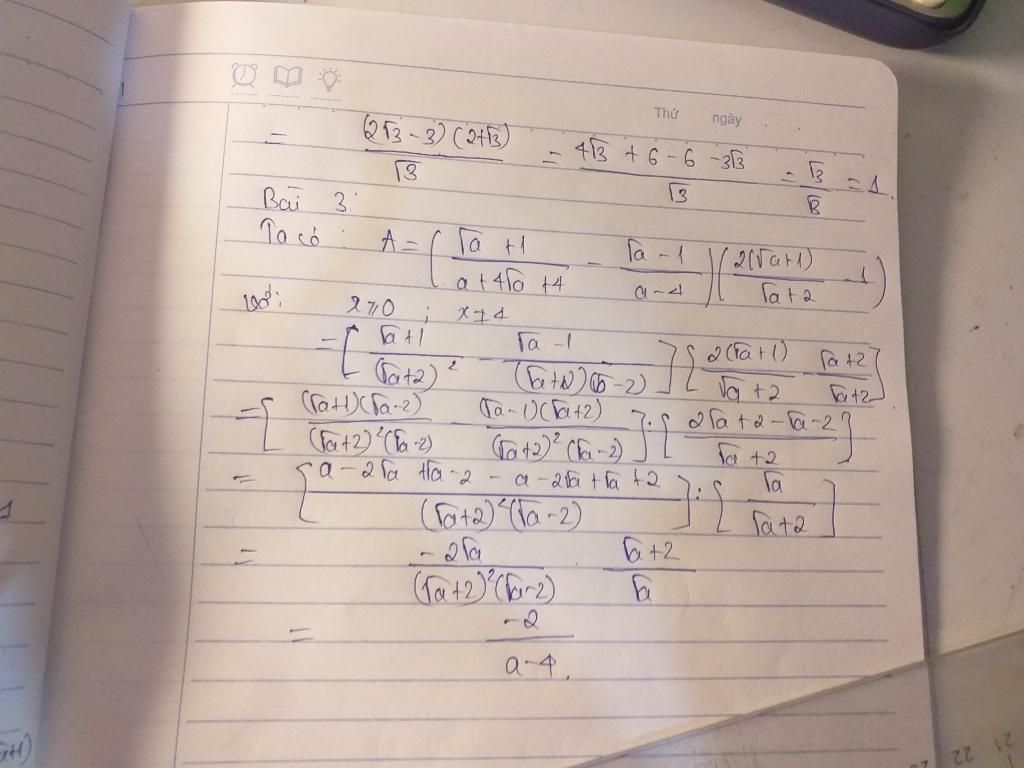 Thứ ngày
= (2√3 - 3)(2+√3) / √3 = 4√3 + 6 - 6 - 3√3 / √3 = √3 / √3 = 1.
Bài 3:
Ta có: A = ( √a + 1 / a + 4√a + 4 - √a - 1 / a - 4 ) ( 2(√a+1) / √a + 2 - 1 )
với: x ≥ 0 ; x ≠ 4
= [ √a + 1 / (√a+2)² - √a - 1 / (√a+2)(√a-2) ] [ 2(√a+1) / √a + 2 - √a+2 / √a+2 ]
= [ (√a+1)(√a-2) / (√a+2)²(√a-2) - (√a-1)(√a+2) / (√a+2)²(√a-2) ] : [ 2√a + 2 - √a - 2 / √a + 2 ]
= [ a - 2√a + √a - 2 - a - 2√a + √a + 2 / (√a+2)²(√a-2) ] : [ √a / √a+2 ]
= -2√a / (√a+2)²(√a-2) . √a+2 / √a
= -2 / a-4.
21
22